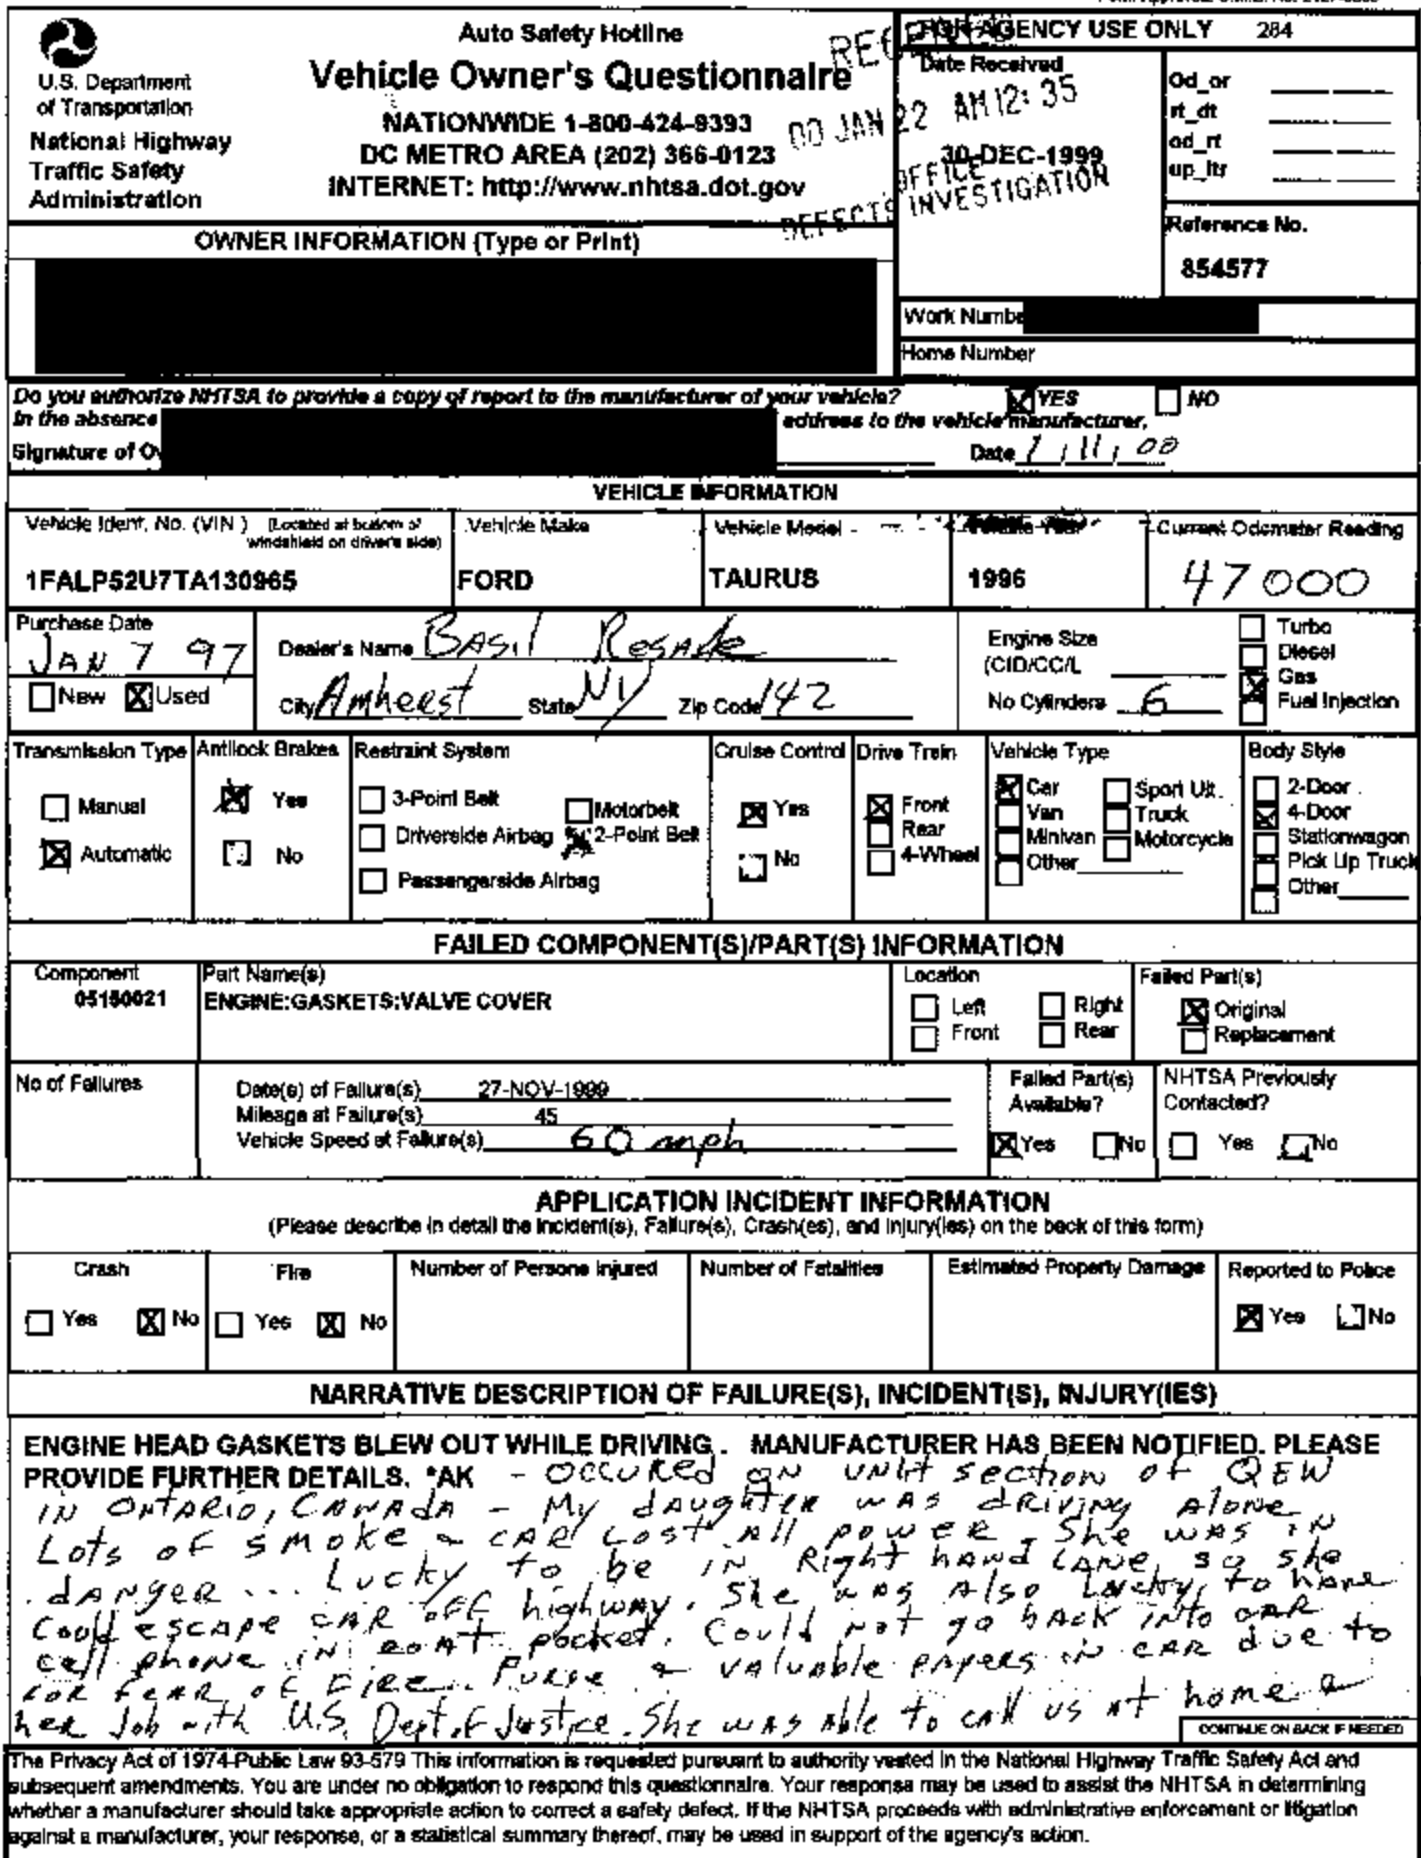 Auto Safety Hotline
Vehicle Owner's Questionnaire
NATIONWIDE 1-800-424-9393
DC METRO AREA (202) 366-0123
INTERNET: http://www.nhtsa.dot.gov
U.S. Department
of Transportation
National Highway
Traffic Safety
Administration
FOR AGENCY USE ONLY 284
Date Received
00 JAN 22 AM 12:35
30-DEC-1999
OFFICE
DEFECTS INVESTIGATION
Od_or
rt_dt
od_rt
up_ltr
Reference No.
854577
OWNER INFORMATION (Type or Print)
Work Numbe
Home Number
Do you authorize NHTSA to provide a copy of report to the manufacturer of your vehicle? YES NO
In the absence address to the vehicle manufacturer.
Signature of Ow Date 1/11/00
VEHICLE INFORMATION
Vehicle Ident. No. (VIN) (Located at bottom of windshield on driver's side)
1FALP52U7TA130965
Vehicle Make
FORD
Vehicle Model
TAURUS
Vehicle Year
1996
Current Odometer Reading
47000
Purchase Date
JAN 7 97
New Used
Dealer's Name Basil Resale
City Amherst State NY Zip Code 142
Engine Size
(CID/CC/L
No Cylinders 6
Turbo
Diesel
Gas
Fuel Injection
Transmission Type
Manual
Automatic
Antilock Brakes
Yes
No
Restraint System
3-Point Belt
Motorbelt
Driverside Airbag 2-Point Belt
Passengerside Airbag
Cruise Control
Yes
No
Drive Train
Front
Rear
4-Wheel
Vehicle Type
Car Sport Ult.
Van Truck
Minivan Motorcycle
Other
Body Style
2-Door
4-Door
Stationwagon
Pick Up Truck
Other
FAILED COMPONENT(S)/PART(S) INFORMATION
Component
05150021
Part Name(s)
ENGINE:GASKETS:VALVE COVER
Location
Left Right
Front Rear
Failed Part(s)
Original
Replacement
No of Failures
Date(s) of Failure(s) 27-NOV-1999
Mileage at Failure(s) 45
Vehicle Speed at Failure(s) 60 mph
Failed Part(s)
Available?
Yes No
NHTSA Previously
Contacted?
Yes No
APPLICATION INCIDENT INFORMATION
(Please describe in detail the incident(s), Failure(s), Crash(es), and injury(ies) on the back of this form)
Crash
Yes No
Fire
Yes No
Number of Persons Injured
Number of Fatalities
Estimated Property Damage
Reported to Police
Yes No
NARRATIVE DESCRIPTION OF FAILURE(S), INCIDENT(S), INJURY(IES)
ENGINE HEAD GASKETS BLEW OUT WHILE DRIVING. MANUFACTURER HAS BEEN NOTIFIED. PLEASE
PROVIDE FURTHER DETAILS. *AK - occured on unlit section of QEW
in Ontario, Canada - My daughter was driving alone
Lots of smoke & car lost all power. She was in
danger... Lucky to be in Right hand lane, so she
could escape car off highway. She was also lucky to have
cell phone in coat pocket. Could not go back into car
for fear of fire. Purse & valuable papers in car due to
her Job with U.S. Dept. of Justice. She was able to call us at home &
CONTINUE ON BACK IF NEEDED
The Privacy Act of 1974-Public Law 93-579 This information is requested pursuant to authority vested in the National Highway Traffic Safety Act and
subsequent amendments. You are under no obligation to respond this questionnaire. Your response may be used to assist the NHTSA in determining
whether a manufacturer should take appropriate action to correct a safety defect. If the NHTSA proceeds with administrative enforcement or litigation
against a manufacturer, your response, or a statistical summary thereof, may be used in support of the agency's action.